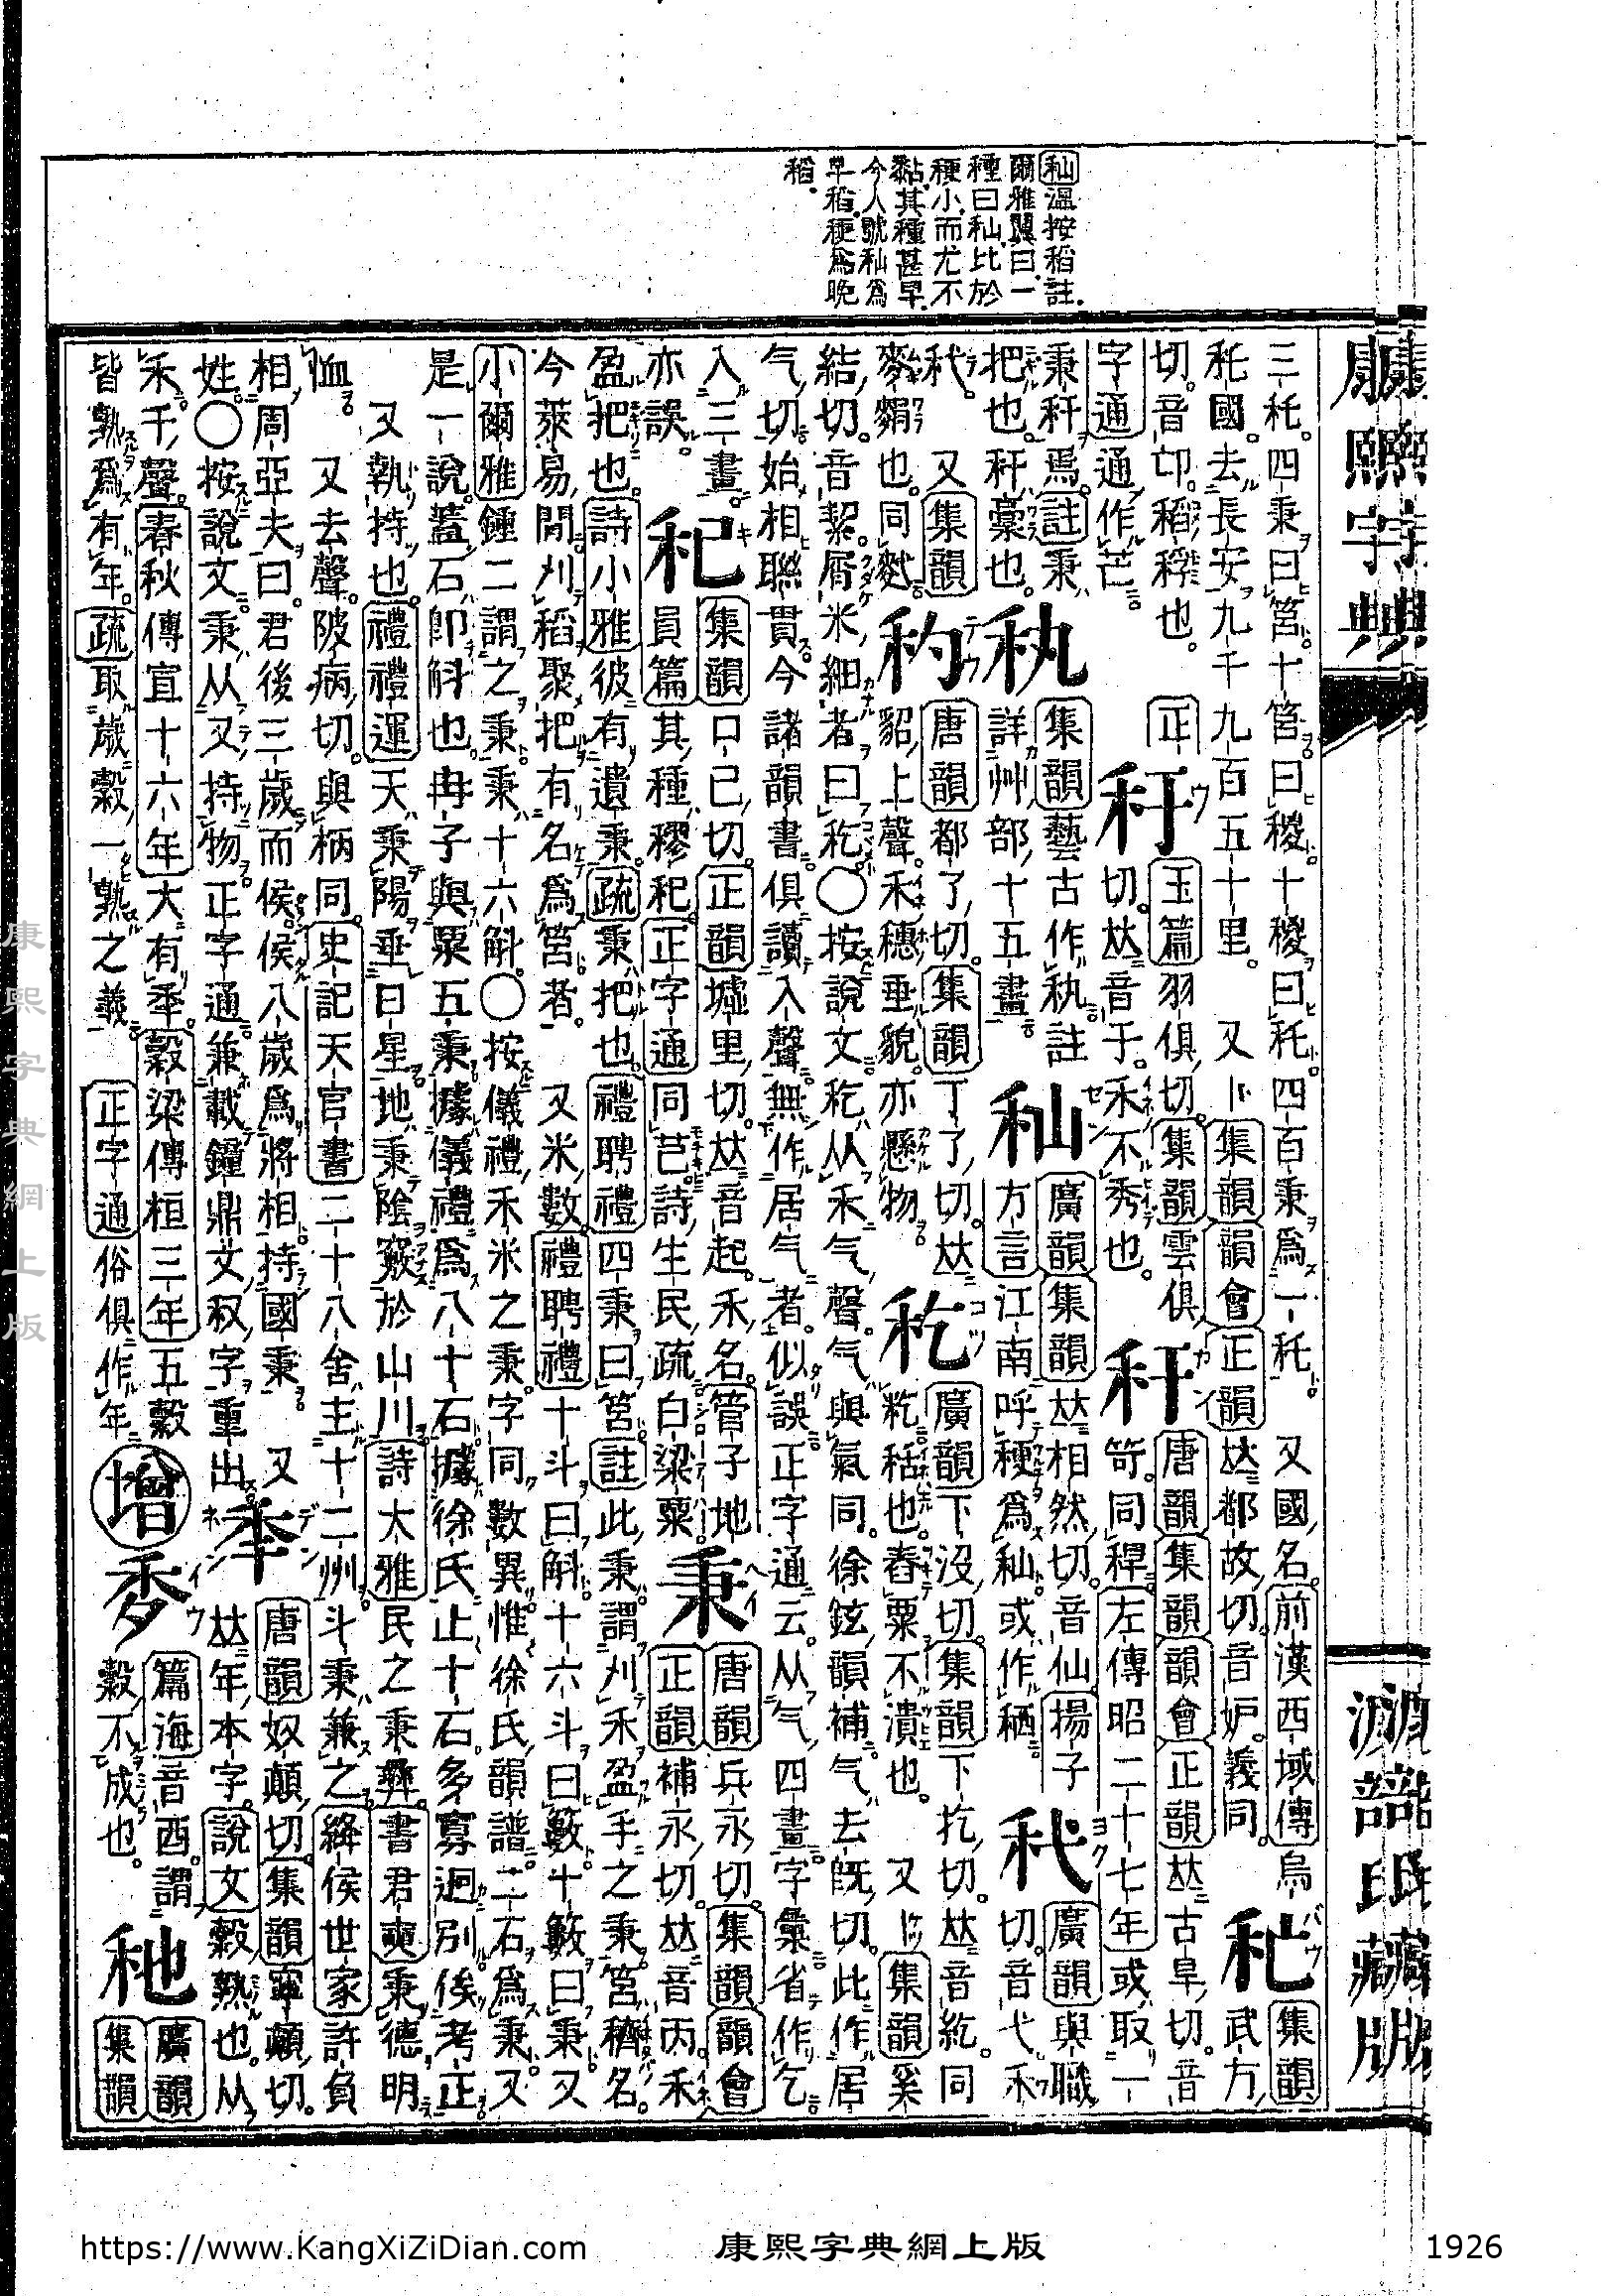 秈溫按稻註
爾雅翼曰一
種曰秈比於
稉小而尤不
黏其種甚早
今人號秈爲
早稻稉爲晩
稻
康熙字典
三秅。四秉曰筥。十筥曰稯。十稯曰秅。四百秉爲一秅。 又國名。前漢西域傳烏
秅國。去長安九千九百五十里。 又卜集韻韻會正韻𠀤都故切。音妒。義同。
秐
集韻
武方
切。音𠅘。稻稈也。 正
字通
通作芒
秆
玉篇羽俱切。集韻雲俱
切𠀤音于。禾不秀也。
秆
唐韻集韻韻會正韻𠀤古旱切。音
笴。同稈。左傳昭二十七年或取一
秉秆焉。註秉
把也。秆藁也。
秇
集韻藝古作秇註
詳艸部十五畫
秈
廣韻集韻𠀤相然切。音仙。揚子
方言江南呼稉爲秈或作䄠
䄩
廣韻與職
切。音弋。禾
䄩。 又集韻
麥䴷也。同䴬
䄪
唐韻都了切。集韻丁了切。𠀤
貂上聲。禾穗垂貌。亦懸物。
秔
廣韻下沒切。集韻下扢切。𠀤音紇。同
籺䅥也。舂粟不潰也。 又集韻奚
結切。音絜。屑米細者曰䄫〇按說文䄫从禾气聲。气與氣同。徐鉉韻補气去旣切。此作居
气切始相聯貫。今諸韻書俱讀入聲。無作居气者。似誤正字通云。从气四畫字彙省作乞
入三畫。
亦誤。
䄫
集韻口己切。正韻墟里切。𠀤音起。禾名。管子地
員篇其種穋䄫。正字通同芑。詩生民疏白粱粟。
秉
唐韻兵永切。集韻韻會
正韻補永切。𠀤音丙。禾
盈把也。詩小雅彼有遺秉。疏秉把也。禮聘禮四秉曰筥。註此秉謂刈禾盈手之秉。筥穧名。
今萊易閒刈稻聚把有名爲筥者。 又米數。禮聘禮十斗曰斛。十六斗曰籔十籔曰秉。又
小爾雅鍾二謂之秉。秉十六斛。〇按儀禮禾米之秉字同數異。惟徐氏韻譜二石爲秉。又
是一說。蓋石卽斛也。冉子與粟五秉據儀禮爲八十石。據徐氏止十石。多寡迥別。俟考正。
又執持也。禮禮運天秉陽垂日星。地秉陰竅於山川。詩大雅民之秉彝。書君奭秉德明
恤。 又去聲。陂病切。與柄同。史記天官書二十八舍主十二州。斗秉兼之。絳侯世家許負
相周亞夫曰。君後三歲而侯。侯八歲爲將相。持國秉。 又
姓。〇按說文秉从又持禾。正字通兼載鐘鼎文秉字重出
秊
唐韻奴顚切。集韻寧顚切。
𠀤年本字。說文穀熟也。从
禾千聲。春秋傳宣十六年大有秊。穀梁傳桓三年五穀
皆熟爲有年。疏取歲穀一熟之義 正字通俗俱作年
增
䄮
篇海音西。謂
穀不成也。
䄬
廣韻
集韻
康熙字典網上版
https://www.KangXiZiDian.com
康熙字典網上版
1926